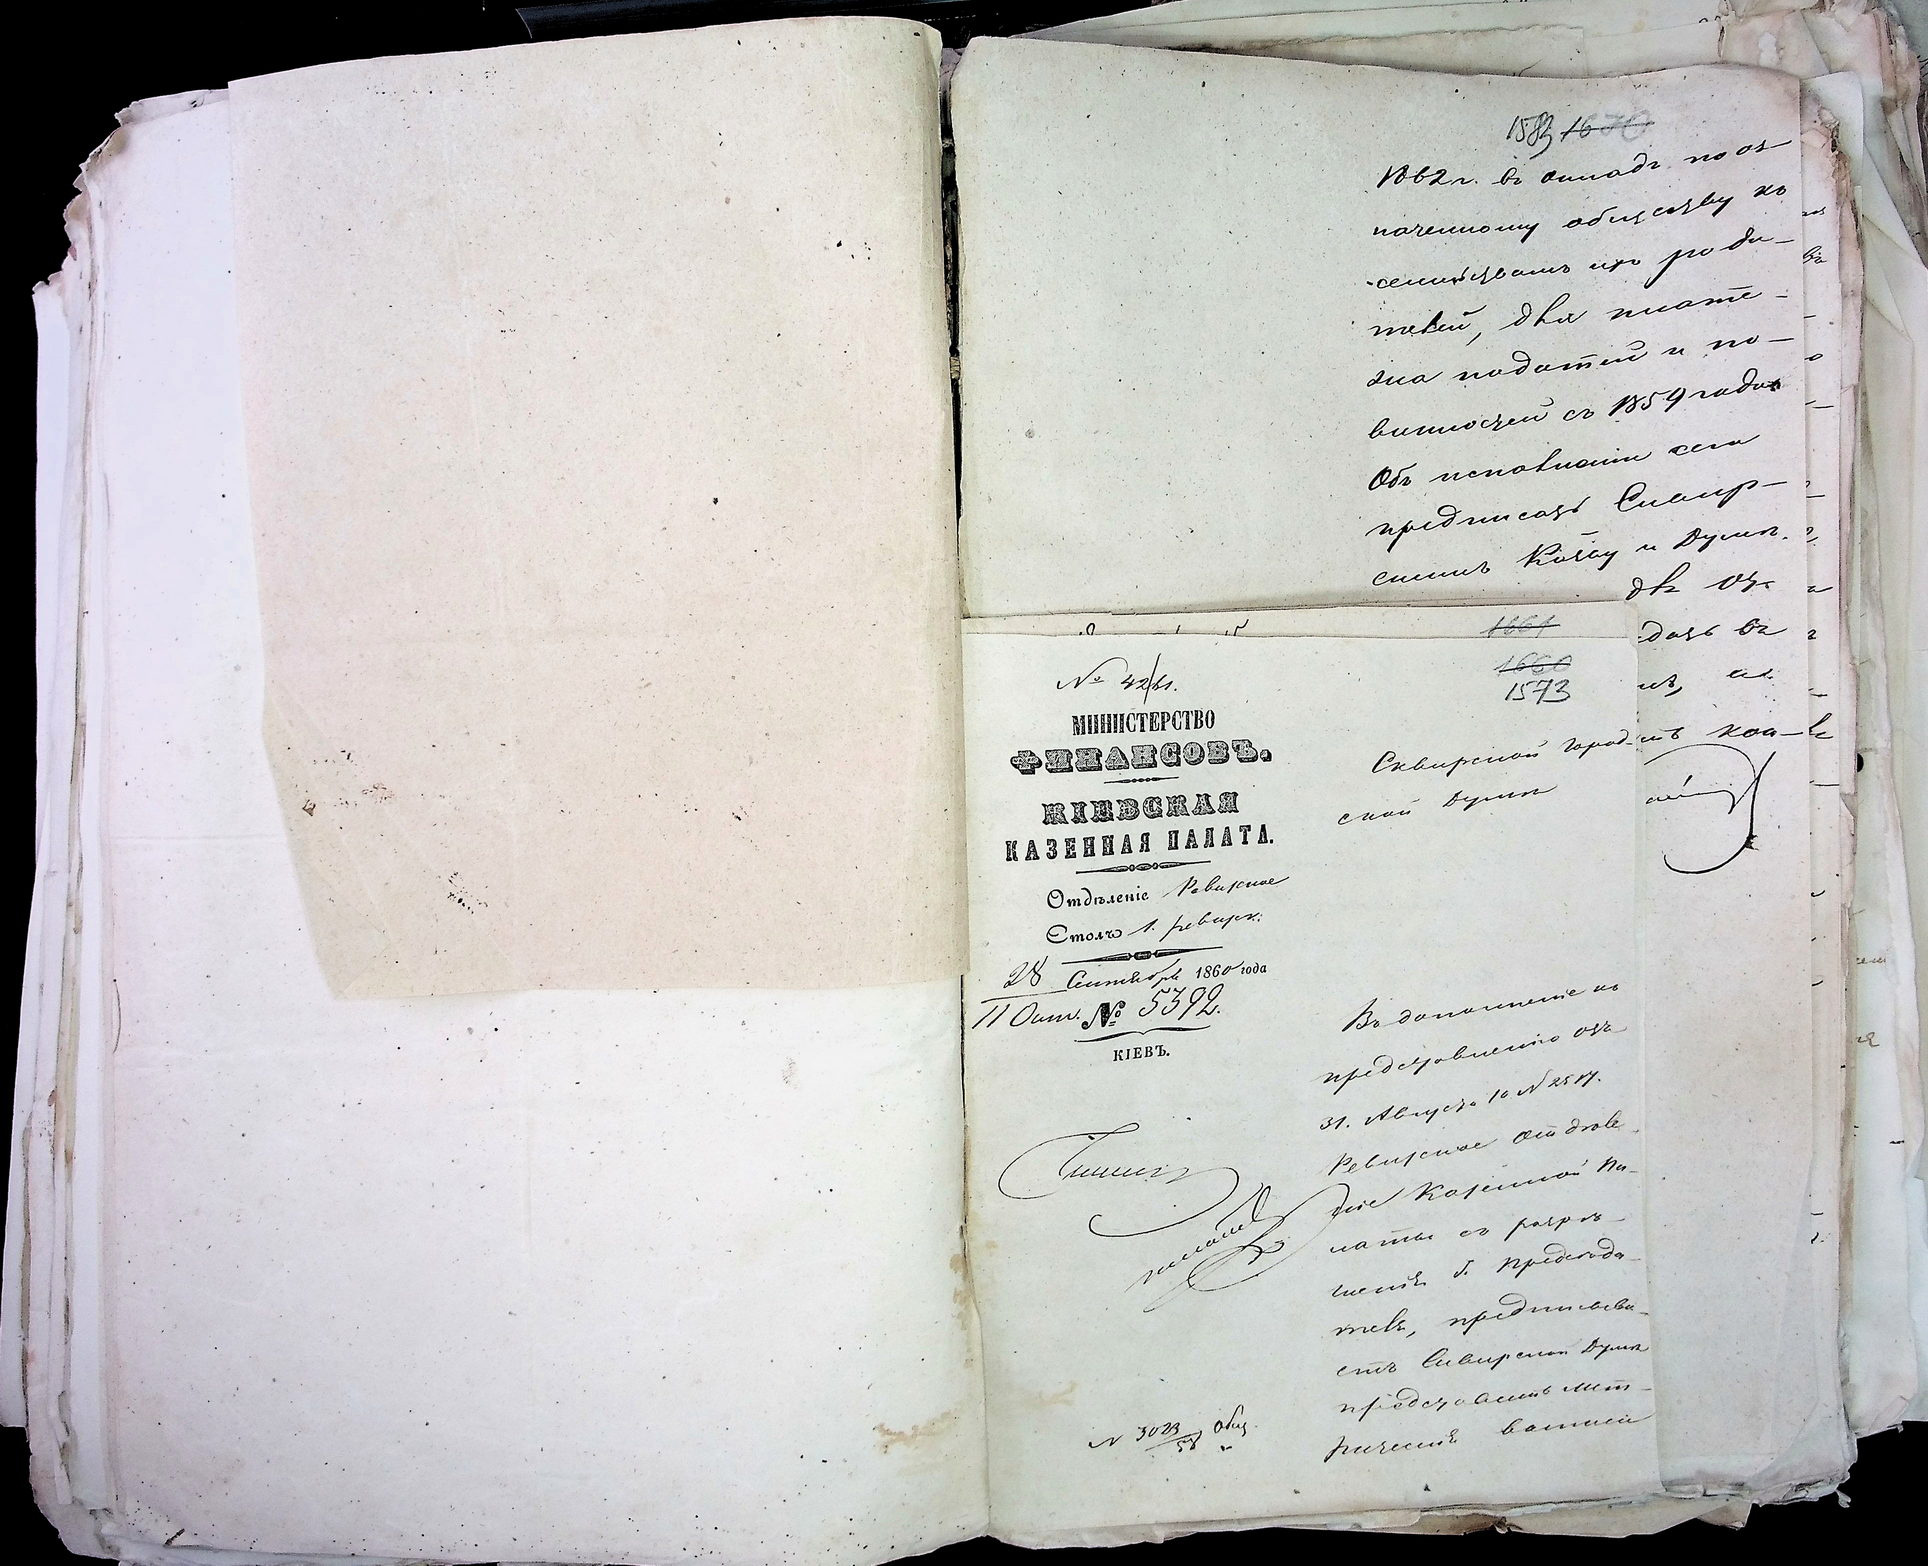 1583 1670
1862 г. въ окладъ по оз-
наченному обществу къ
семействамъ ихъ роди-
телей, для плате-
жа податей и по-
винностей съ 1859 года
Объ исполненіи сего
предписать Сквир-
скимъ Каз-ву и Думѣ.
1661
1660
1573
№ 42
МИНИСТЕРСТВО
ФИНАНСОВЪ.
КІЕВСКАЯ
КАЗЕННАЯ ПАЛАТА.
Отдѣленіе Ревизское
Столъ 1. ревизск:
28 Сентября 1860 года
11 Окт. № 5392.
КІЕВЪ.
№ 3023/58 Общ.
Сквирской Город-
ской Думѣ
Въ дополненіе къ
представленію отъ
31. Августа № 2517.
Ревизское Отдѣле-
ніе Казенной Па-
латы съ разрѣ-
шенія Г. Предсѣда-
теля, предписыва-
етъ Сквирской Думѣ
представить мет-
рическія